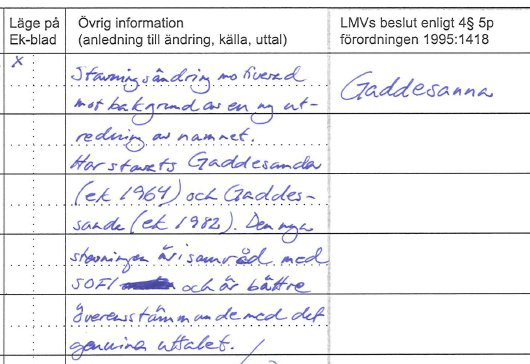 Läge på Ek-blad
Övrig information (anledning till ändring, källa, uttal)
LMVs beslut enligt 4§ 5p förordningen 1995:1418
x
Stavningsändring motiverad
mot bakgrund av en ny ut-
redning av namnet.
Har stavats Gaddesanda
(ek 1964) och Gaddes-
sande (ek 1982). Den nya
stavningen är i samråd med
SOFI och är bättre
överensstämmande med det
genuina uttalet.
Gaddesanna